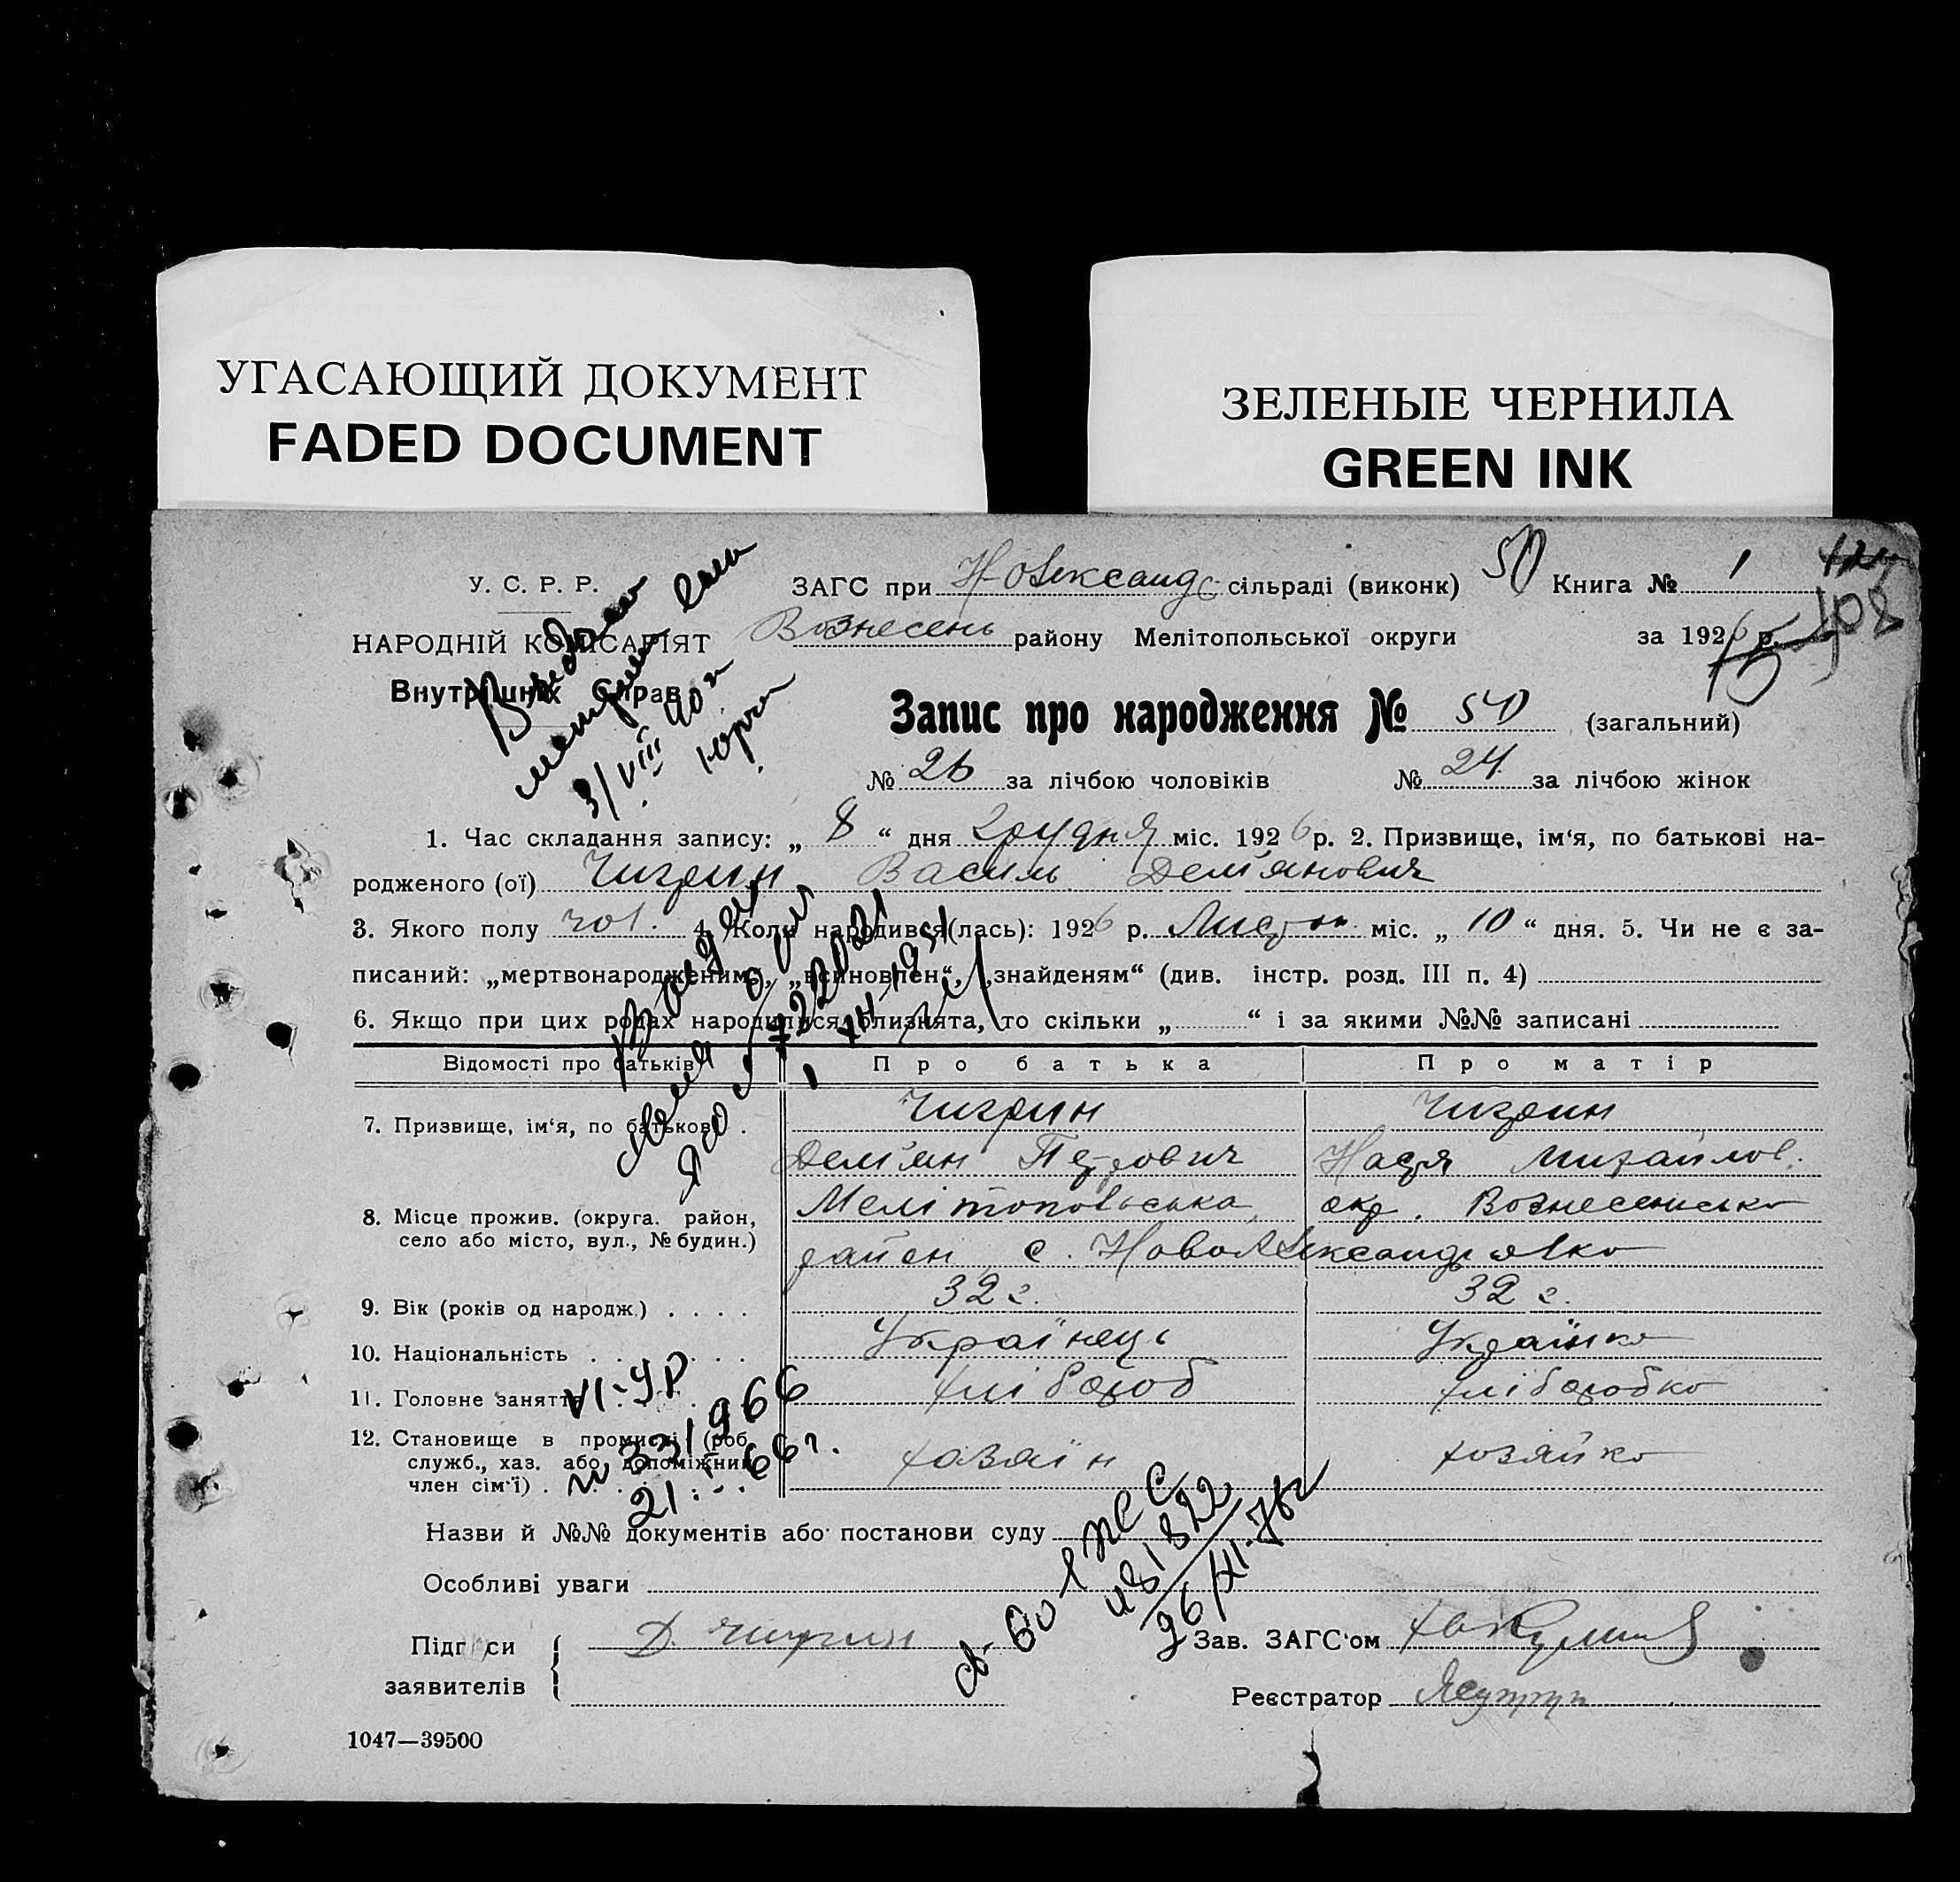 УГАСАЮЩИЙ ДОКУМЕНТ
FADED DOCUMENT
ЗЕЛЕНЫЕ ЧЕРНИЛА
GREEN INK
У. С. Р. Р.
НАРОДНІЙ КОМІСАРІЯТ
Внутрішніх Справ
ЗАГС при Н-Олександ сільраді (виконк) 50 Книга № 1
108
Вознесень району Мелітопольської округи за 1926 р.
Запис про народження № 50 (загальний)
№ 26 за лічбою чоловіків № 24 за лічбою жінок
1. Час складання запису: „ 8 “ дня грудня міс. 1926 р. 2. Призвище, ім‘я, по батькові на-
родженого (ої) Чигрин Василь Дем'янович
3. Якого полу чол. 4. Коли народився(лась): 1926 р. Листоп. міс. „ 10 “ дня. 5. Чи не є за-
писаний: „мертвонародженим“, „всиновлен“, „знайденям“ (див. інстр. розд. III п. 4)
6. Якщо при цих родах народилися близнята, то скільки „ “ і за якими №№ записані
Відомості про батьків Про батька Про матір
7. Призвище, ім‘я, по батькові . Чигрин Чигрин
Дем'ян Петрович Надя Михайлов.
8. Місце прожив. (округа. район, село або місто, вул., № будин.) Мелітопольська, окр. Вознесенсько
район с. НовоОлександрівко
9. Вік (років од народж.) . . . . 32 г. 32 г.
10. Національність . . . . . . Українець Українко
11. Головне заняття хлібороб хліборобко
12. Становище в промислі (роб. служб., хаз. або допоміжний член сім‘ї) . . . хазяїн хозяйко
3/VIII 40
VI-УР
№ 331966
21. 66 г.
481822
Назви й №№ документів або постанови суду
Особливі уваги
Підписи заявителів Д. Чигрин
Зав. ЗАГС‘ом
Реєстратор
1047—39500